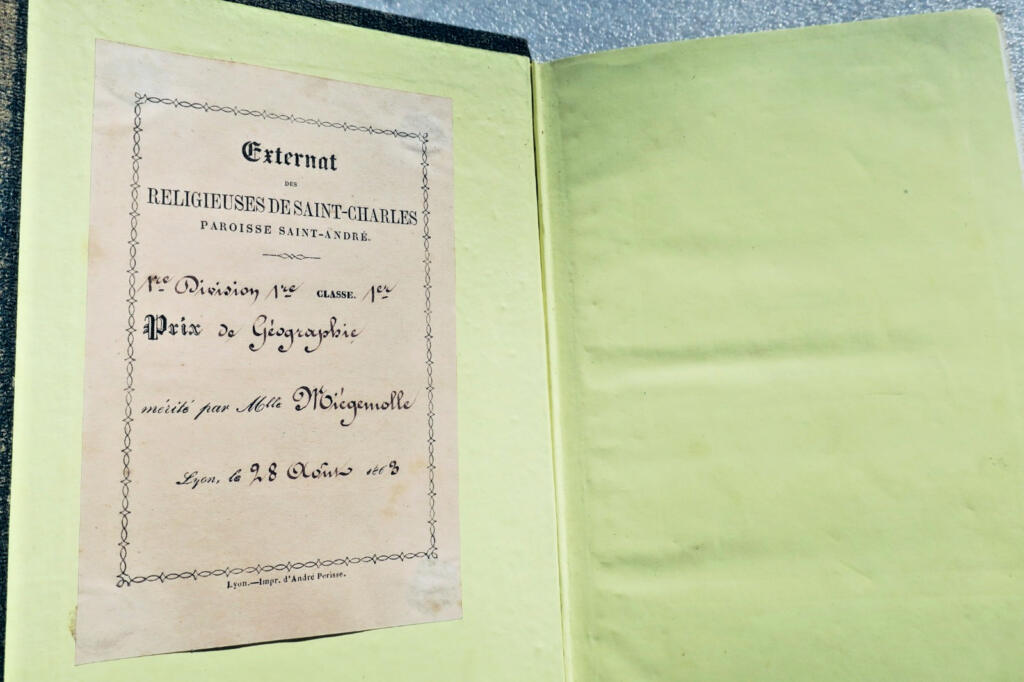 Externat
DES
RELIGIEUSES DE SAINT-CHARLES
PAROISSE SAINT-ANDRÉ.
1re Division 1re CLASSE. 1er
Prix de Géographie
mérité par Mlle Miégemolle
Lyon, le 28 Août 1863
Lyon.—Impr. d'André Perisse.